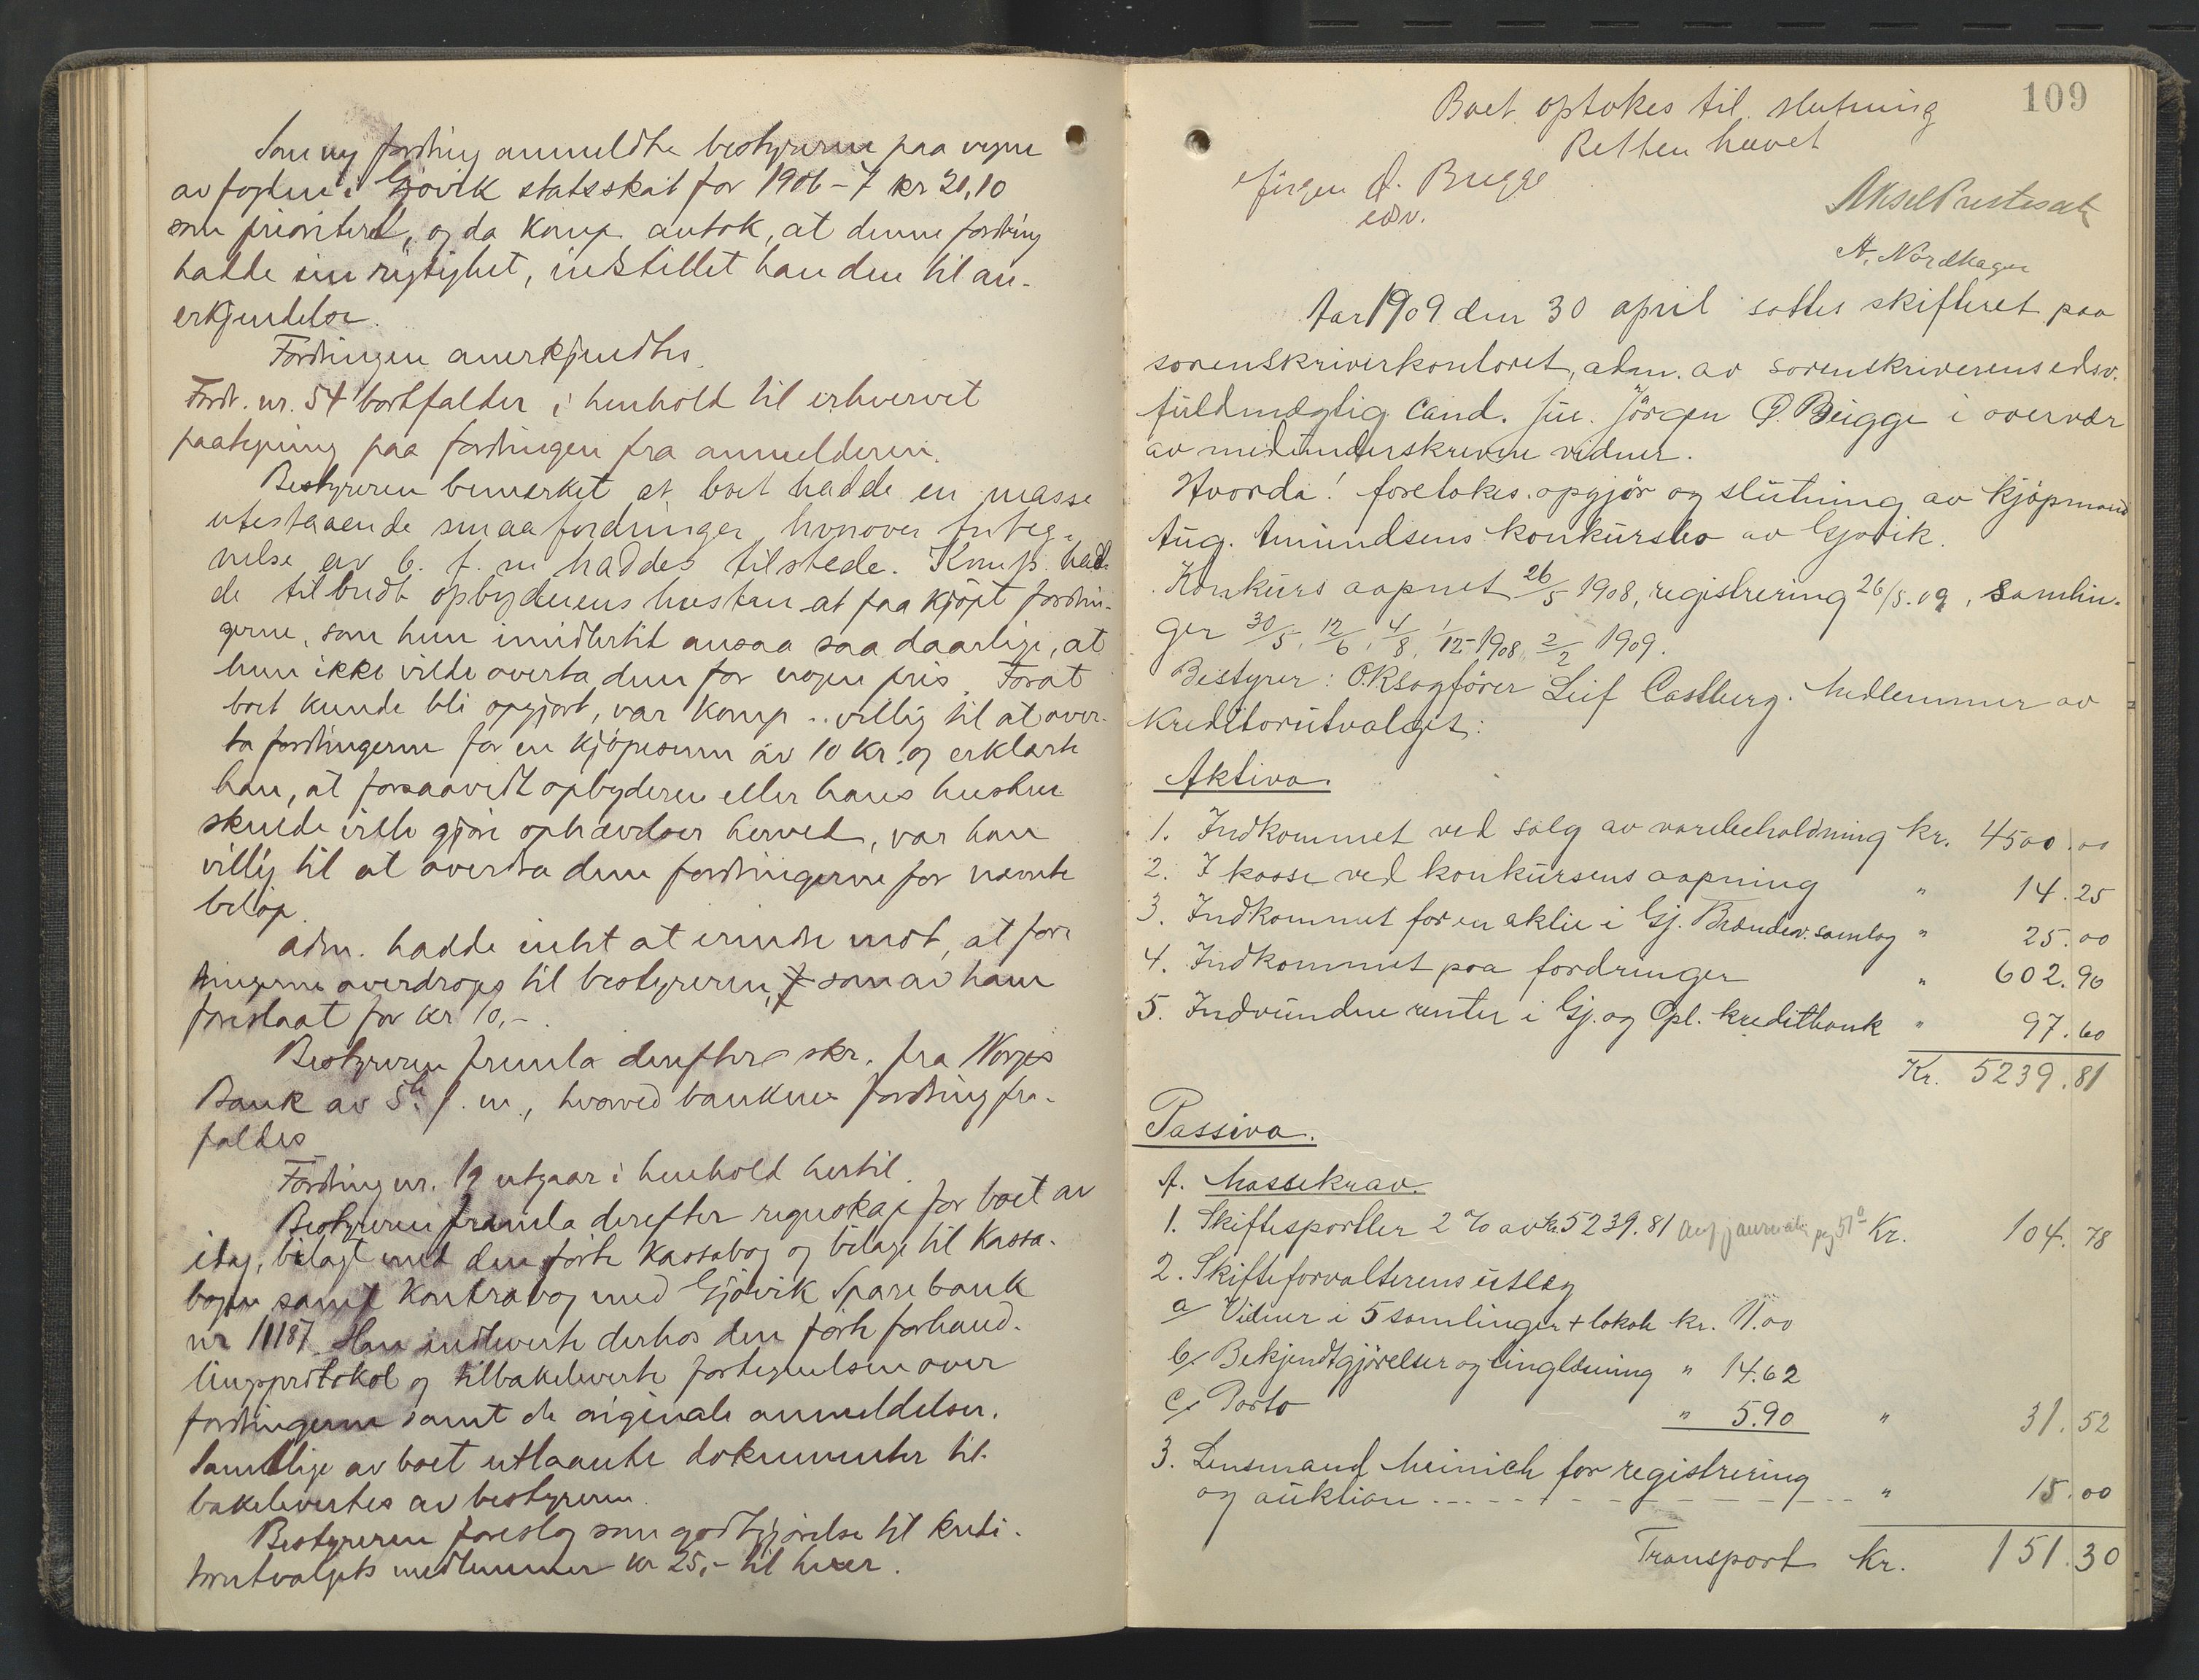 Som ny fordring anmeldte bestyreren paa vegne
av fogden i Gjøvik statsskat for 1906-7 kr 21,10
som prioritert, og da komp. antok, at denne fordring
hadde sin rigtighet, indstillet han den til an-
erkjendelse.
Fordringen anerkjendtes.
Fordr. nr. 54 bortfalder i henhold til erhvervet
paategning paa fordringen fra anmelderen.
Bestyreren bemerket at boet hadde en masse
utestaaende smaafordringer hvorover forteg-
nelse av 6. f. m haddes tilstede. Komp. had-
de tilbudt opbyderens hustru at faa kjöpt fordrin-
gerne, som hun imidlertid ansaa saa daarlige, at
hun ikke vilde overta dem for nogen pris. Forat
boet kunde bli opgjort, var komp.. villig til at over-
ta fordringerne for en kjöpesum av 10 kr. og erklærte
han, at forsaavidt opbyderen eller hans hustru
skulde ville gjöre ophævelser herved, var han
villig til at overdra dem fordringerne for nævnte
belöp.
Adm. hadde intet at erindre mot, at ford-
ringerne overdroges til bestyreren, som av ham
foreslaat for kr 10,-.
Bestyreren fremla derefter skr. fra Norges
Bank av 5te f. m., hvorved bankens fordring fra-
faldes
Fordring nr. 19 utgaar i henhold hertil.
Bestyreren fremla derefter regnskap for boet av
idag, bilagt med den förte kassabog og bilage til kassa-
bogen samt kontrabog med Gjövik Sparebank
nr 11187. Han indleverte derhos den förte forhand-
lingsprotokol og tilbakeleverte fortegnelsen over
fordringerne samt de originale anmeldelser.
Samtlige av boet utlaante dokumenter til-
bakelevertes av bestyreren.
Bestyreren foreslog som godtgjörelse til kredi-
torutvalgets medlemmer kr 25,- til hver.
109
Boet optokes til slutning
Retten hævet
Jörgen P. Bugge
edsv.
Aksel Prestesæter
N. Nordhagen
Aar 1909 den 30 april sattes skifteret paa
sorenskriverkontoret, adm. av sorenskriverens edsv.
fuldmægtig cand. jur. Jörgen P. Bugge i overvær
av medunderskrevne vidner.
Hvorda! foretokes opgjör og slutning av kjöpmand
Aug. Amundsens konkursbo av Gjøvik.
Konkurs aapnet 26/5 1908, registrering 26/5.09, samlin-
ger 30/5, 12/6, 4/8, 1/12-1908, 2/2 1909.
Bestyrer: O.Ksagförer Leif Castberg. Medlemmer av
kreditorutvalget:
Aktiva.
1. Indkommet ved salg av varebeholdning kr. 4500.00
2. I kasse ved konkursens aapning " 14.25
3. Indkommet for en aktie i Gj. Brændev. samlag " 25.00
4. Indkommet paa fordringer " 602.96
5. Indvundne renter i Gj. og Opl. kreditbank " 97.60
Kr. 5239.81
Passiva.
A. Massekrav.
1. Skiftesportler 2 % av kr. 5239.81 Kr. 104.78
2. Skifteforvalterens utlæg
a/ Vidner i 5 samlinger + lokale kr. 11.00
b/ Bekjendtgjörelser og tinglæsning " 14.62
c/ Porto " 5.90 " 31.52
3. Lensmand Meinich for registrering
og auktion " 15.00
Transport Kr. 151.30